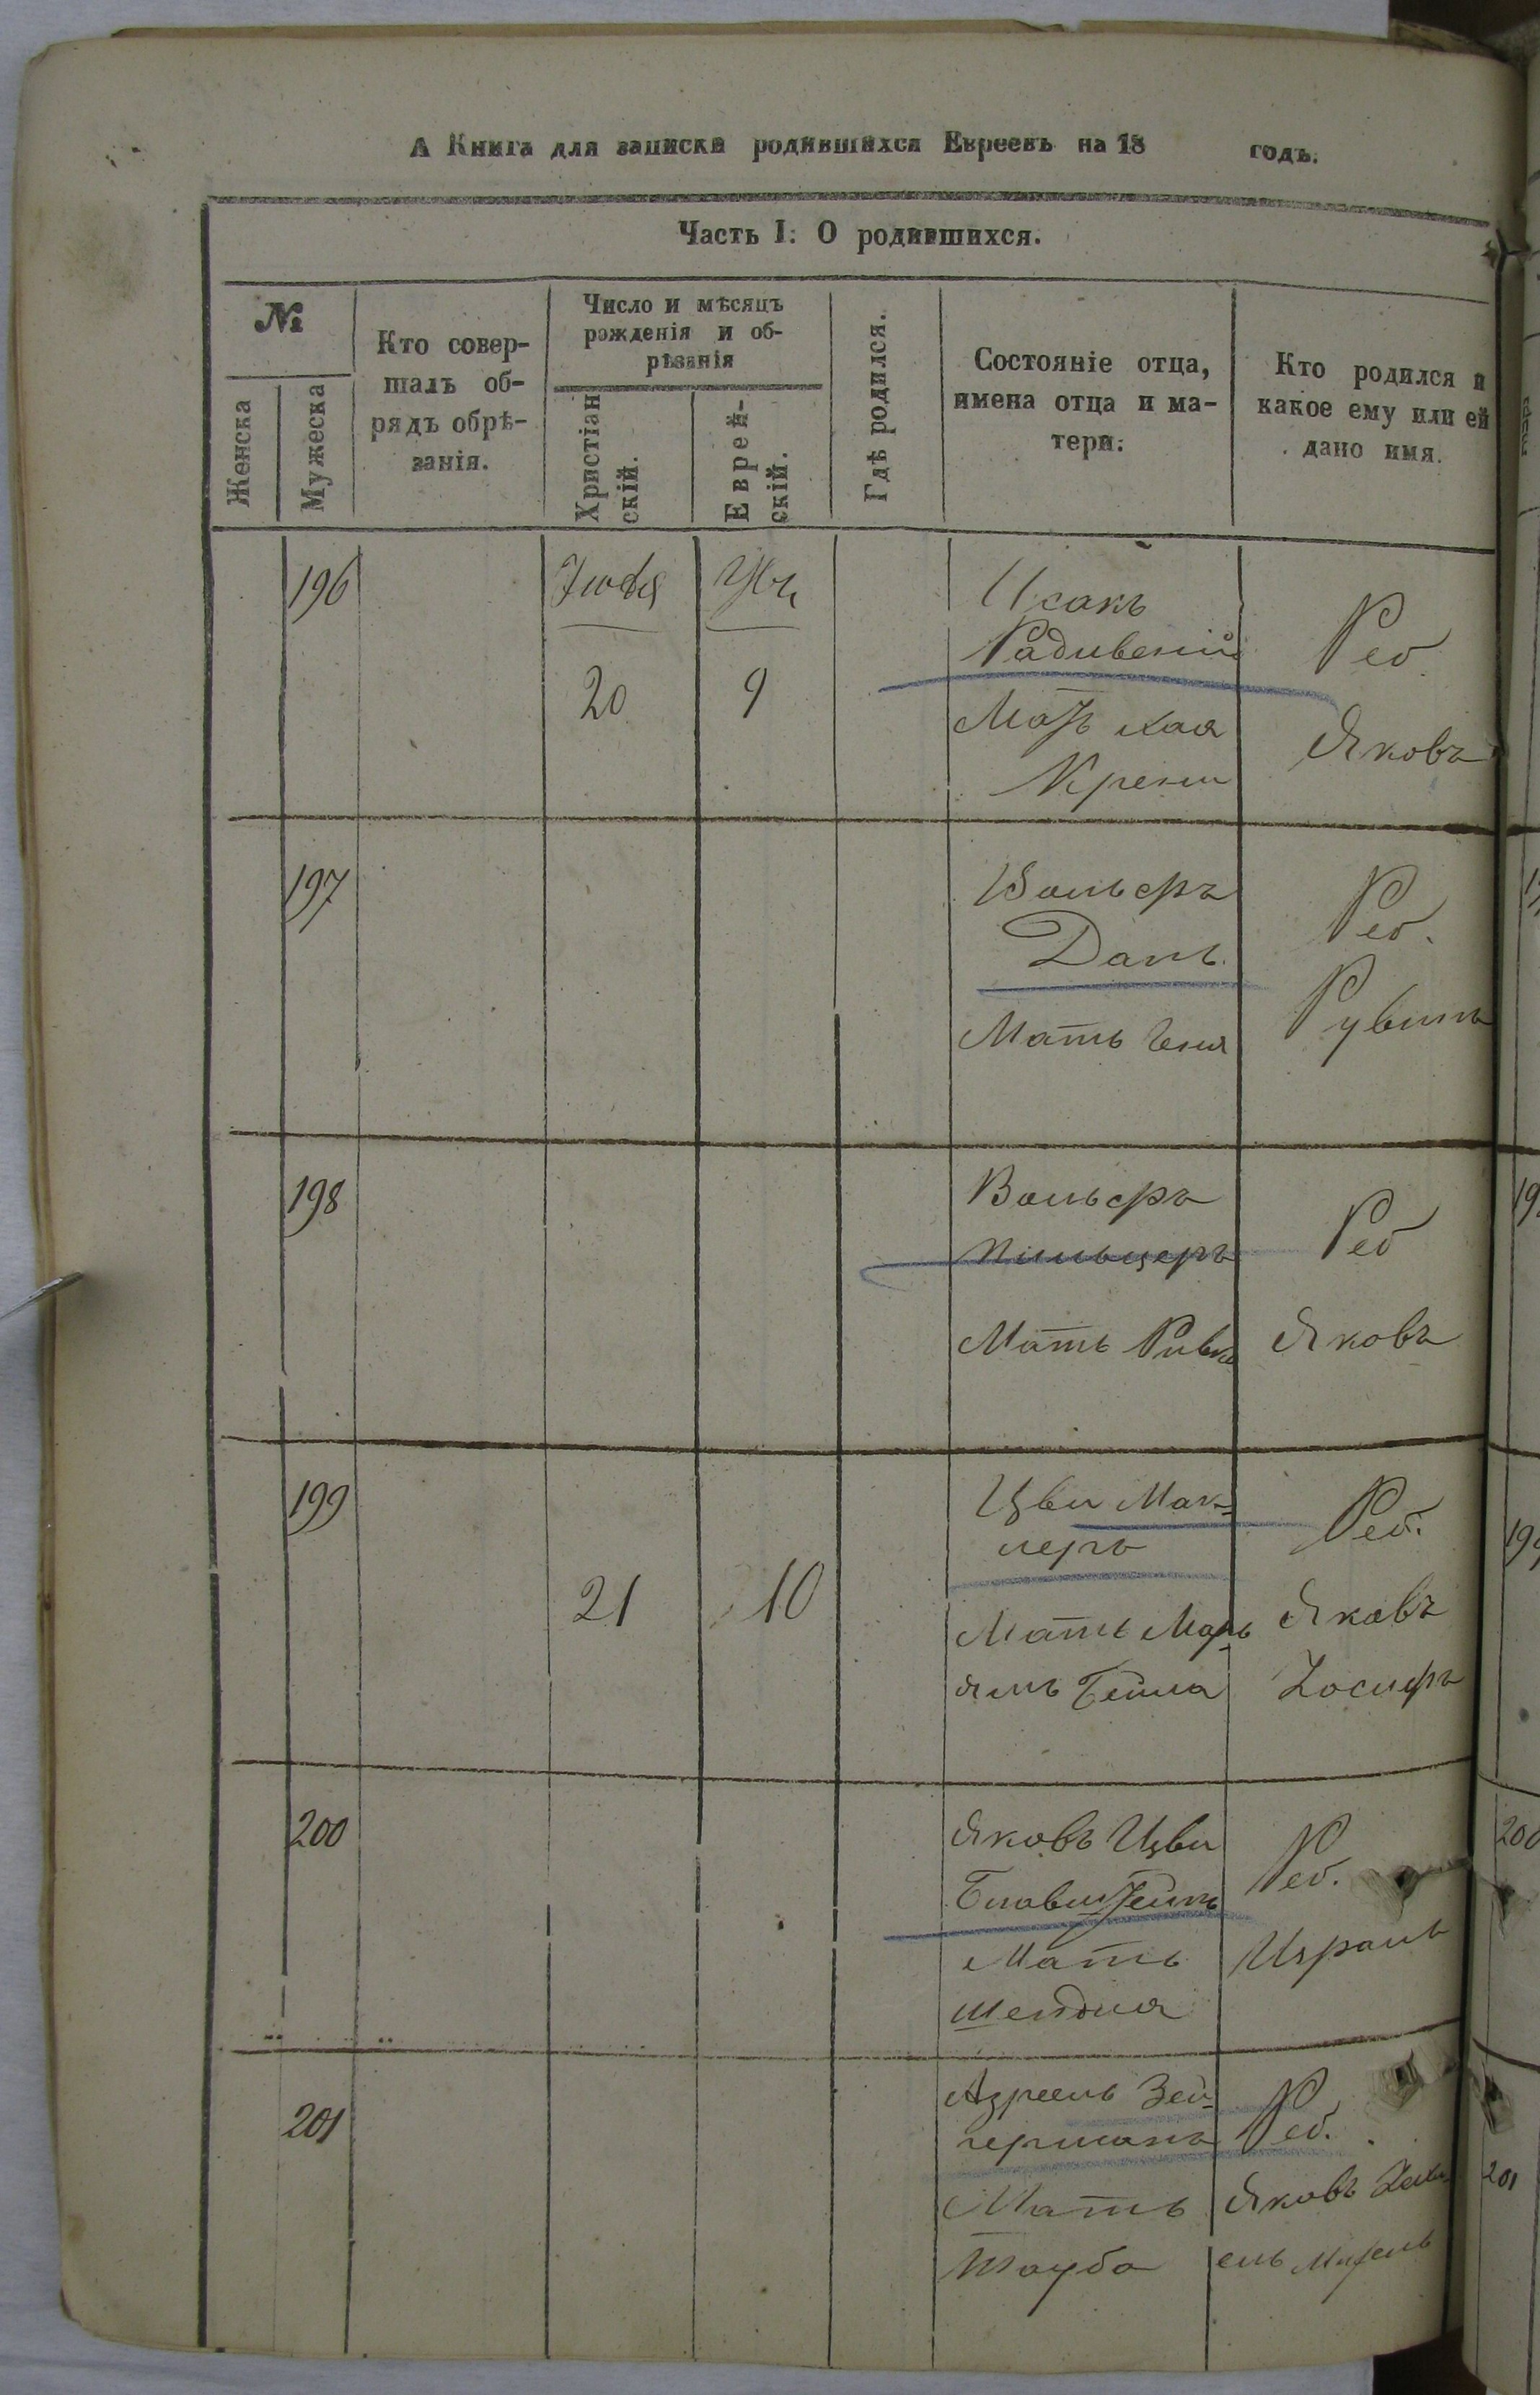 А Книга для записки родившихся Евреевъ на 18 годъ.
Часть I: О родившихся.
№
Женска
Мужеска
Кто совер-
шалъ об-
рядъ обрѣ-
занія.
Число и мѣсяцъ
рожденія и об-
рѣзанія
Христіан
скій.
Еврей-
скій.
Гдѣ родился.
Состояніе отца,
имена отца и ма-
тери.
Кто родился и
какое ему или ей
дано имя.
196
20
9
Исакъ
Мать Хая
Реб
Яковъ
197
Вольфъ
Данъ
Мать Геня
Реб.
Рувинъ
198
Вольфъ
Пильцеръ
Мать Ривка
Реб
Яковъ
199
21
10
Цви Мак-
леръ
Мать Марь
ямъ Бейла
Реб.
Яковъ
Іосифъ
200
Яковъ Цви
Мать
Шейдля
Реб.
Израиль
201
Азреель Зей-
германъ
Мать
Тауба
Реб.
Яковъ